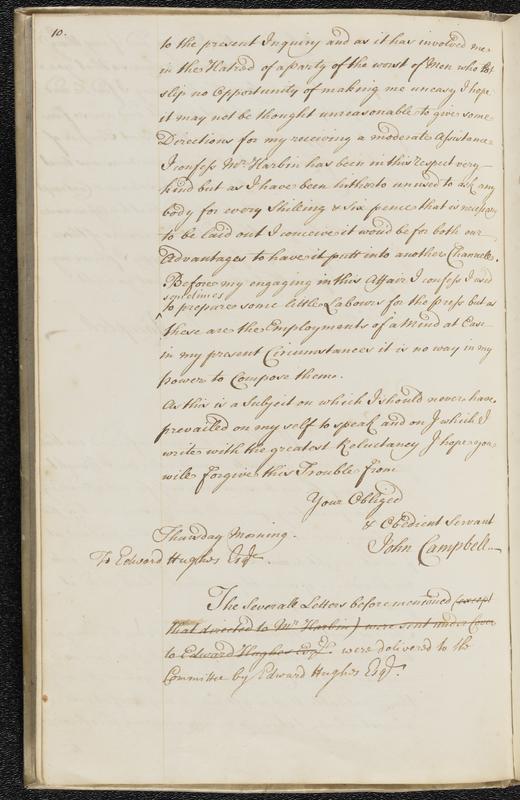 10.
to the present Inquiry and as it has involved me
in the Hatred of a Party of the worst of Men who let
slip no Opportunity of making me uneasy I hope
it may not be thought unreasonable to give some
Directions for my receiving a moderate Assistance
I confess Mr. Harbin has been in this respect very
kind but as I have been hitherto unused to ask any
body for every Shilling & six pence that is necessary
to be laid out I conceive it woud be for both our
Advantages to have it putt into another Channell.
Before my engaging in this Affair I confess I used
sometimes
to prepare some little Labours for the press but as
these are the Employments of a Mind at Ease
in my present Circumstances it is no way in my
power to Compose them.
As this is a Subject on which I should never have
prevailed on my self to speak and on which I
write with the greatest Reluctancy I hope you
will forgive this Trouble from
Your Obliged
& Obedient Servant
John Campbell
Thursday Morning.
To Edward Hughes Esqr.
The Severall Letters before mentioned (except
that directed to Mr. Harbin) were sent under Cover
to Edward Hughes Esqr. were delivered to the
Committee by Edward Hughes Esqr.